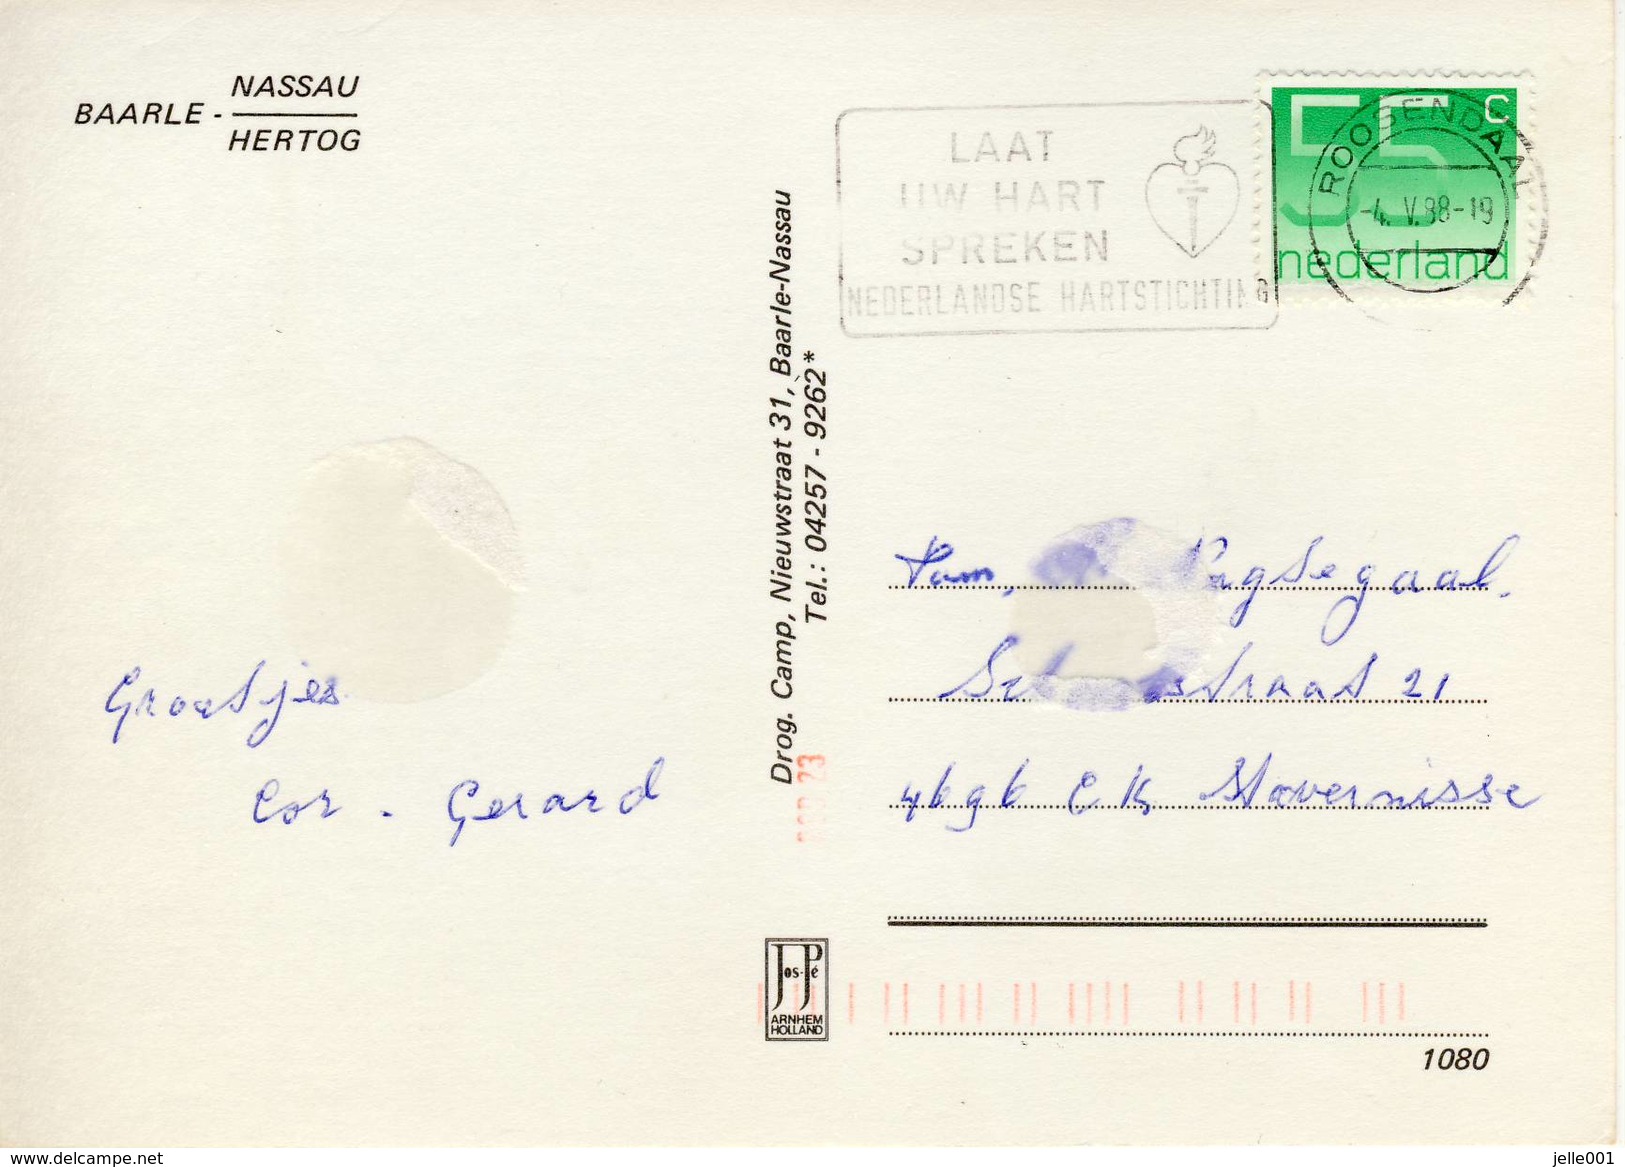 NASSAU
BAARLE -
HERTOG
LAAT
UW HART
SPREKEN
NEDERLANDSE HARTSTICHTING
55 c
nederland
ROOSENDAAL
-4. V.88-19
Drog. Camp, Nieuwstraat 31, Baarle-Nassau
Tel.: 04257 - 9262*
Groetjes
Cor - Gerard
Fam.
straat 21
4696 CK Stavenisse
Jos-Pé
ARNHEM
HOLLAND
1080
www.delcampe.net
jelle001